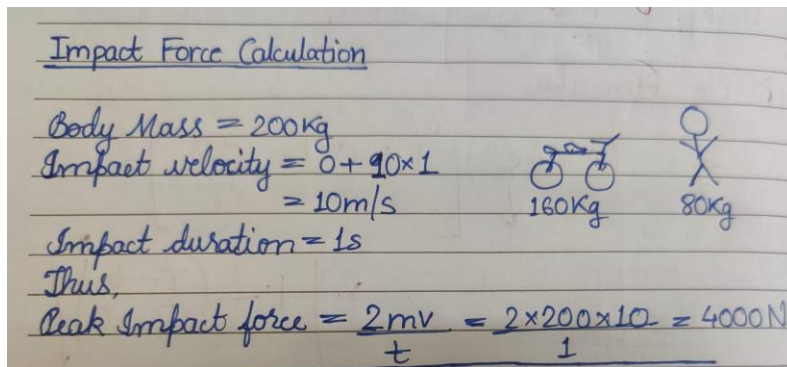 Impact Force Calculation
Body Mass = 200Kg
Impact velocity = 0 + 10×1
= 10m/s
160Kg 80Kg
Impact duration = 1s
Thus,
Peak Impact force = 2mv/t = 2×200×10/1 = 4000N